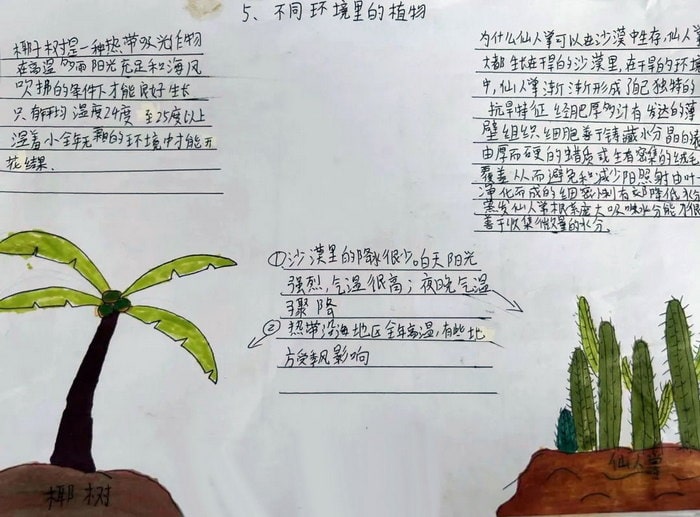 5、不同环境里的植物
椰子树是一种热带吸光作物
在高温多雨阳光充足和海风
吹拂的条件下才能良好生长
只有平均温度24度至25度以上
温差小全年无霜的环境中才能开
花结果.
为什么仙人掌可以在沙漠中生存,仙人
大都生在干旱的沙漠里,在干旱的环境
中,仙人掌渐渐形成了自己独特的
抗旱特征 经肥厚多汁有发达的薄
壁组织细胞善于储藏水分晶白浓
由厚而硬的蜡质或生有密集的绒毛
覆盖从而避免和减少阳照射由叶
净化而成的细密
蒸发仙人掌根系庞大吸
善于收集微量的水分.
①沙漠里的降水很少。白天阳光
强烈,气温很高;夜晚气温
骤降
②热带沿海地区全年高温,有些地
方受季风影响
椰树
仙人掌